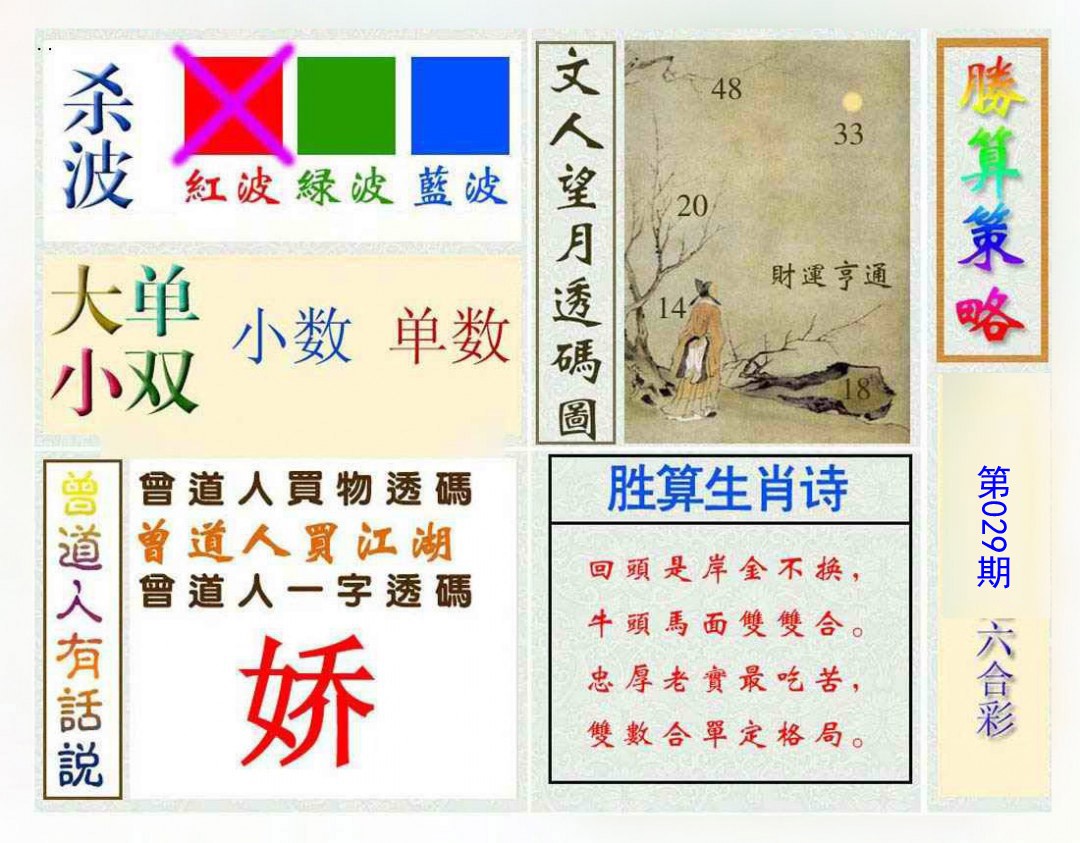 . .
杀波
紅波 緑波 藍波
大单小双
小数 单数
文人望月透碼圖
48
33
20
財運亨通
14
18
勝算策略
曾道人有話説
曾道人買物透碼
曾道人買江湖
曾道人一字透碼
娇
胜算生肖诗
回頭是岸金不换，
牛頭馬面雙雙合。
忠厚老實最吃苦，
雙數合單定格局。
第029期
六合彩